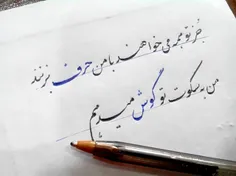 جز تو همه می خواهند با من حرف بزنند
من به سکوت تو گوش میدهم